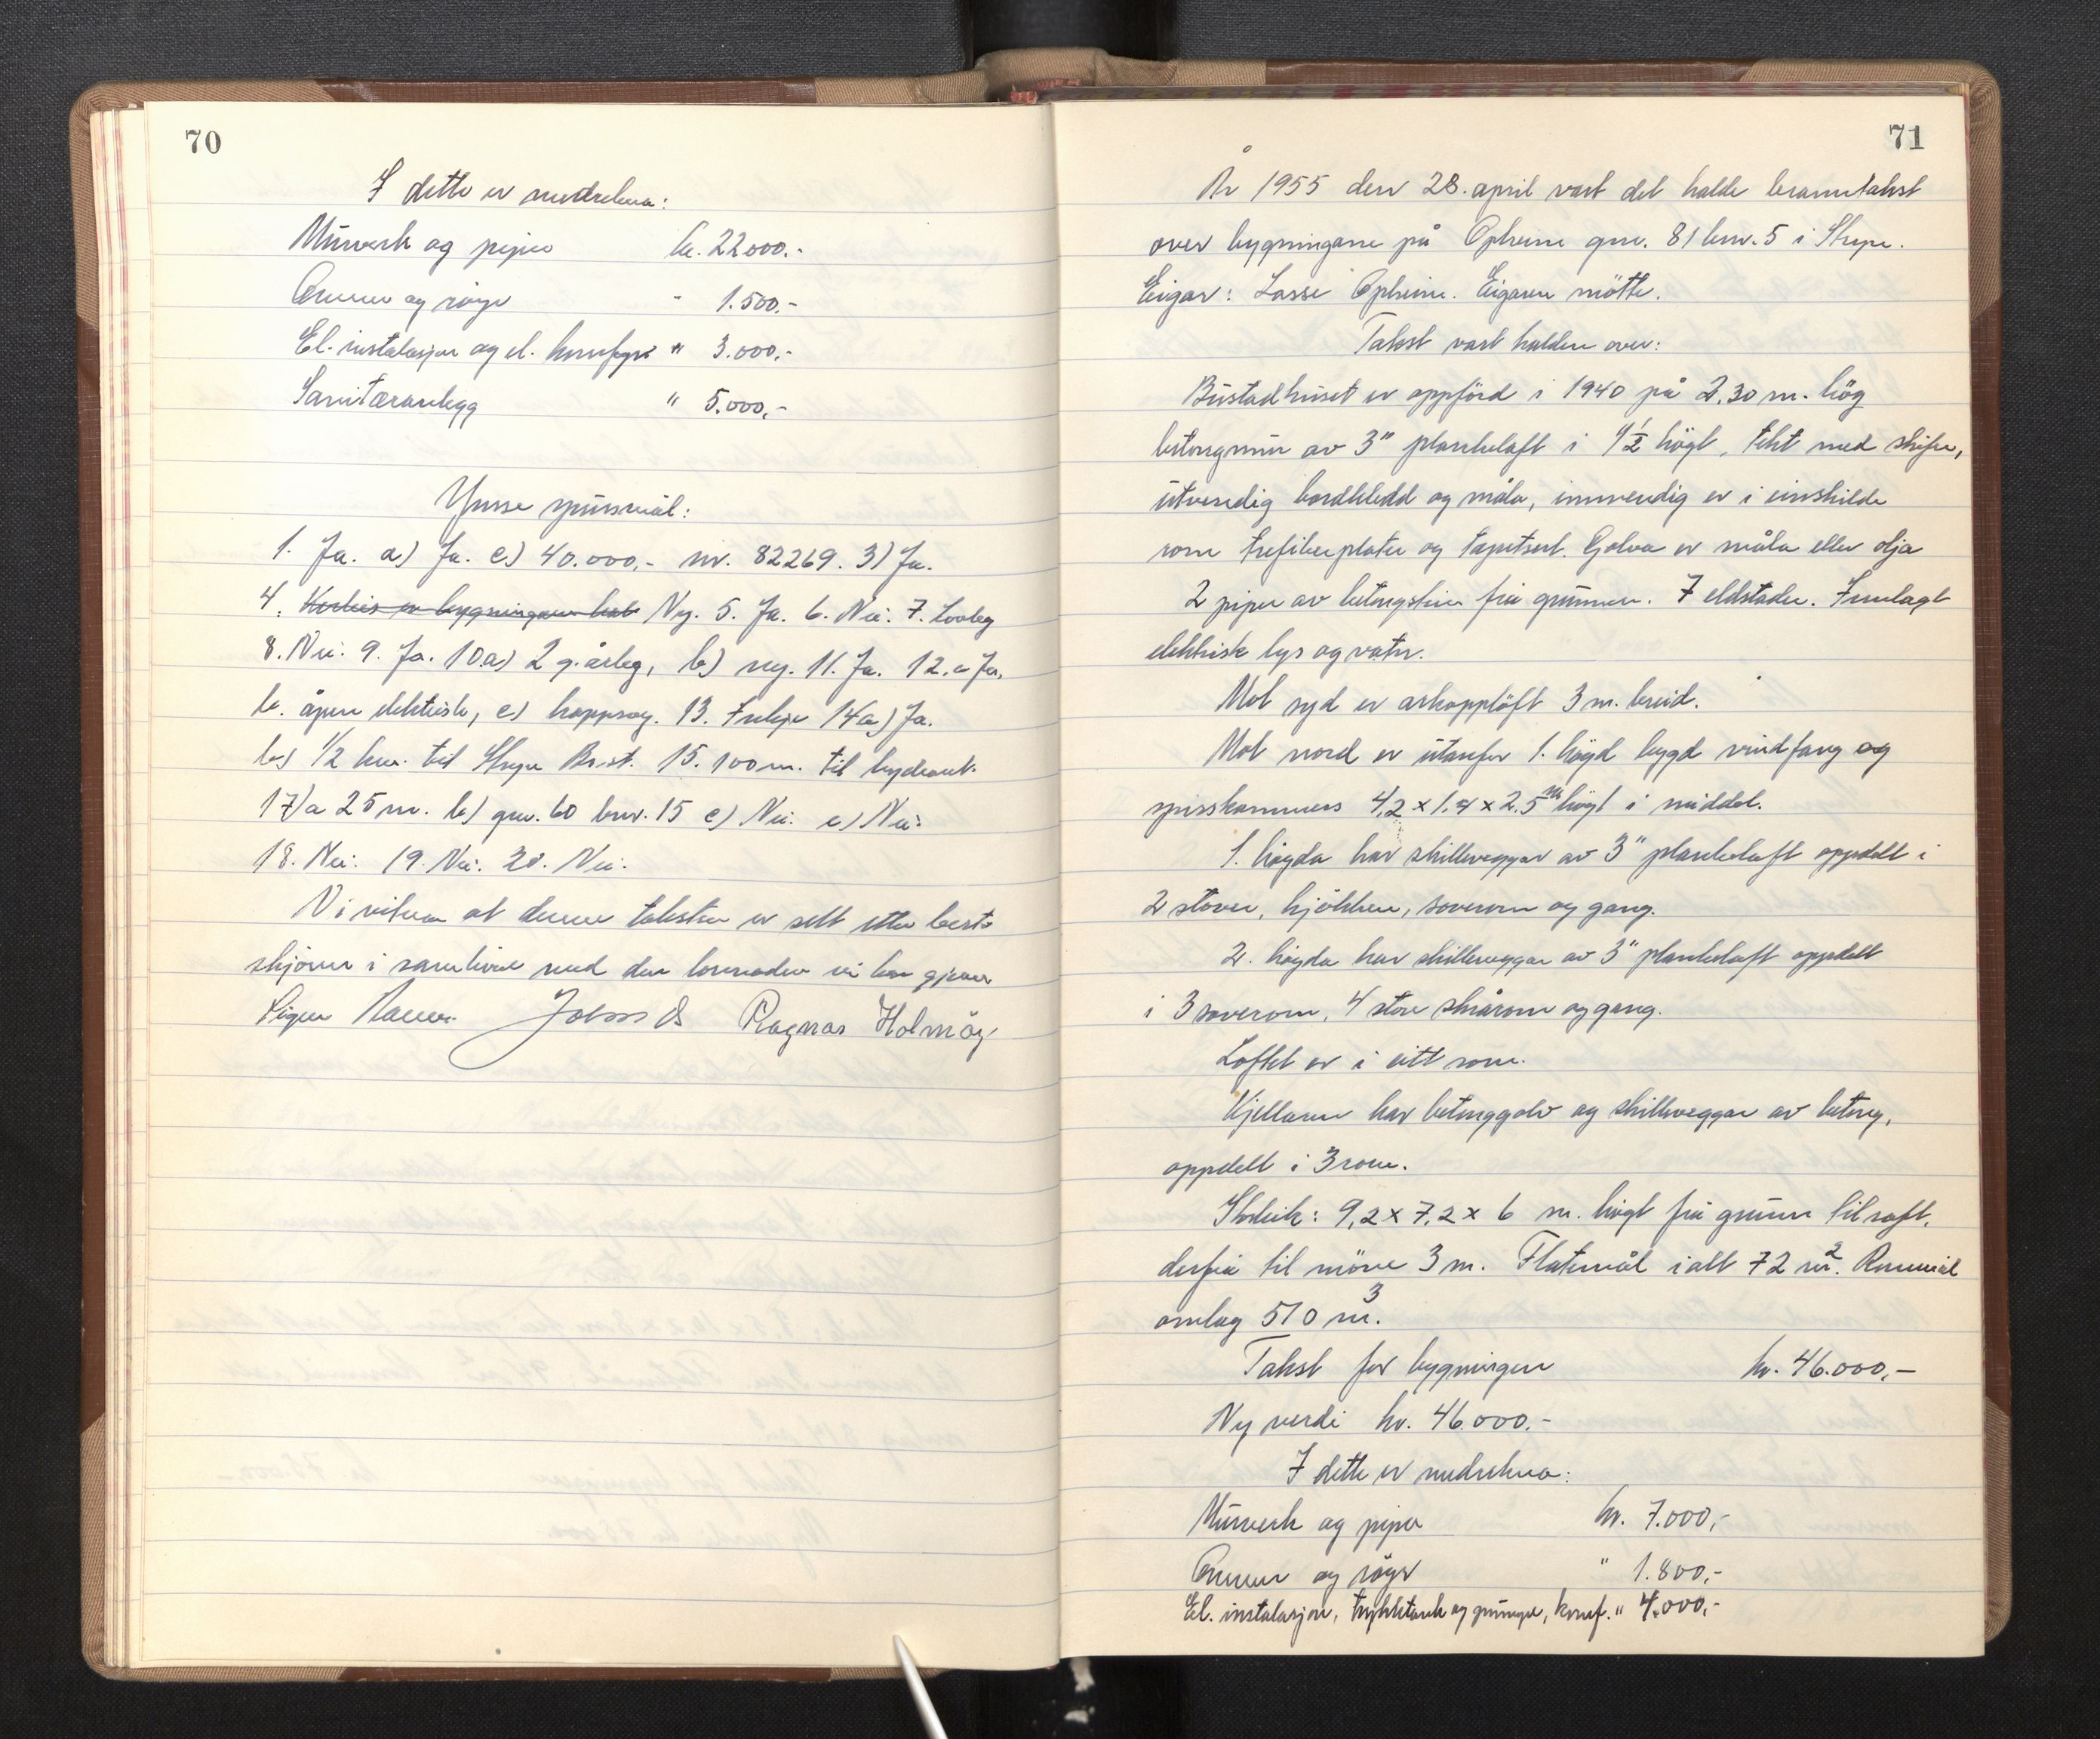 70
I dette er medrekna:
Murverk og piper kr. 22000.-
Omnar og røyr " 1.500.-
El. instalasjon og el. komfyr " 3.000,-
Sanitæranlegg " 5.000,-
Ymse spursmål:
1. Ja. a) Ja. c) 40.000,- nr. 82269. 3) Ja.
4. Korleis er bygningane Ny. 5. Ja. 6. Nei. 7. Lovleg
8. Nei. 9. Ja. 10a) 2 g. årleg, b) nei. 11. Ja. 12. a Ja,
b. åpen elektrisk, c) 13. 14a) Ja.
b) 1/2 km. til Stryn Br.st. 15. 100 m. til hydrant.
17)a 25 m. b) gnr. 60 bnr. 15 c) Nei. e) Nei.
18. Nei. 19. Nei. 20. Nei.
Vi vitnar at denne taksten er sett etter beste
skjønn i samhøve med den lovnaden vi har gjeve
Ragnar Holmøy
71
År 1955 den 28. april vart det halde branntakst
over bygningane på Opheim gnr. 81 bnr. 5 i Stryn.
Eigar: Lasse Opheim. Eigaren møtte.
Takst vart halden over:
Bustadhuset er oppförd i 1940 på 2,30 m. hög
betongmur av 3" plankelaft i 1 1/2 högt, tekt med skifer,
utvendig bordkledd og måla, innvendig er i einskilde
rom trefiberplater og tapetsert. Golva er måla eller olja
2 piper av betongstein frå grunnen. 7 eldstader. Innlagt
elektrisk lys og vatn.
Mot syd er arkopplöft 3 m. breid.
Mot nord er utanfor 1. høgd bygd vindfang og
spisskammers 4,2 x 1,4 x 2,5 m högt i middel.
1. høgda har skilleveggar av 3" plankelaft oppdelt i
2 stover, kjökken, soverom og gang.
2. høgda har skilleveggar av 3" plankelaft oppdelt
i 3 soverom, 4 store skårom og gang.
Loftet er i eitt rom.
Kjellaren har betonggolv og skilleveggar av betong,
oppdelt i 3 rom.
Storleik: 9,2 x 7,2 x 6 m. högt frå grunn til raft,
derfrå til möne 3 m. Flatemål i alt 72 m². Rommål
omlag 510 m³.
Takst for bygningen kr. 46.000,-
Ny verdi kr. 46.000.-
I dette er medrekna:
Murverk og piper kr. 7.000,-
Omnar og røyr " 1.800,-
El. instalasjon, trykktank og pumpe, komf. " 4.000,-